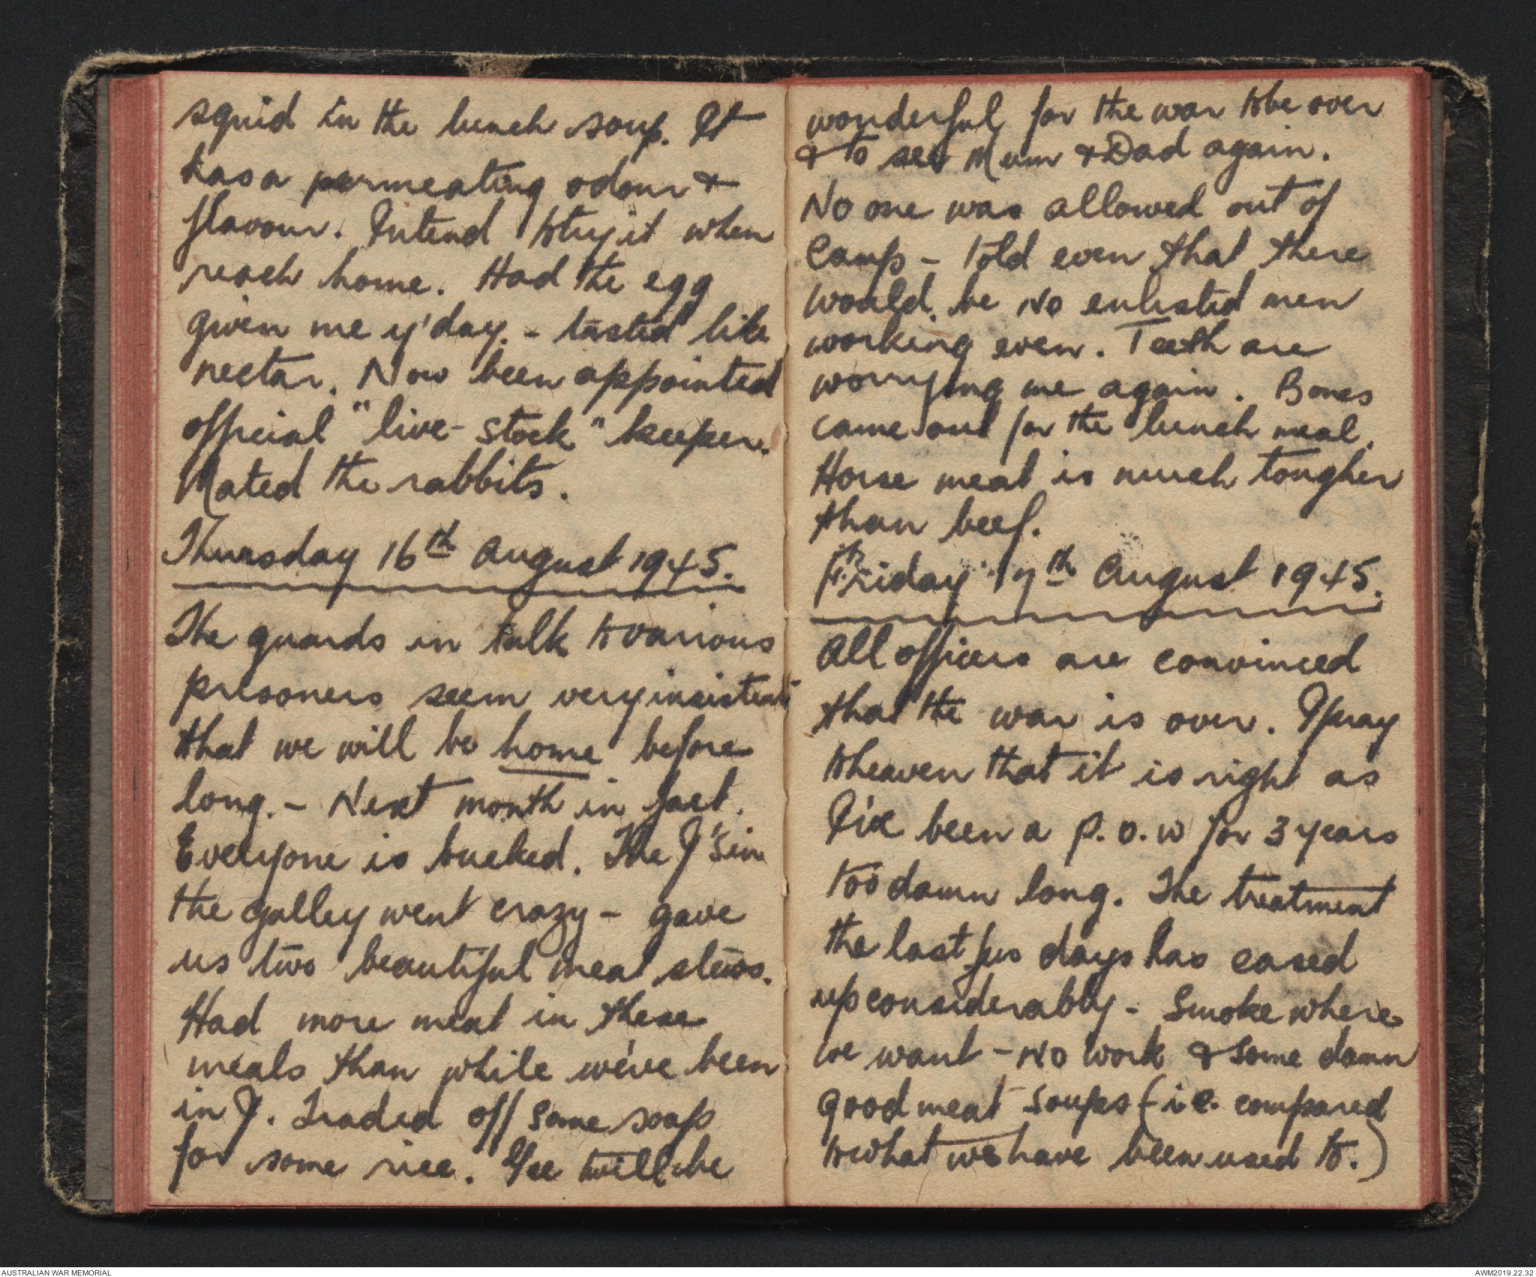 squid in the lunch soup. It
has a permeating odour &
flavour. Intend to try it when
reach home. Had the egg
given me y'day. - tasted like
nectar. Now been appointed
official "live-stock" keeper.
Mated the rabbits.
Thursday 16th August 1945.
The guards in talk to various
prisoners seem very insistent
that we will be home before
long. - Next month in fact.
Everyone is bucked. The J's in
the galley went crazy - gave
us two beautiful meat stews.
Had more meat in these
meals than while we've been
in J. Traded off some soap
for some rice. Gee twill be
wonderful for the war to be over
& to see Mum & Dad again.
No one was allowed out of
Camp - told even that there
would be no enlisted men
working even. Teeth are
worrying me again. Bones
came out for the lunch meal.
Horse meat is much tougher
than beef.
Friday 17th August 1945.
All officers are convinced
that the war is over. I pray
to heaven that it is right as
I've been a P.O.W for 3 years
too damn long. The treatment
the last few days has eased
up considerably - Smoke where
we want - no work & some damn
good meat soups (i.e. compared
to what we have been used to.)
AUSTRALIAN WAR MEMORIAL
AWM2019.22.32